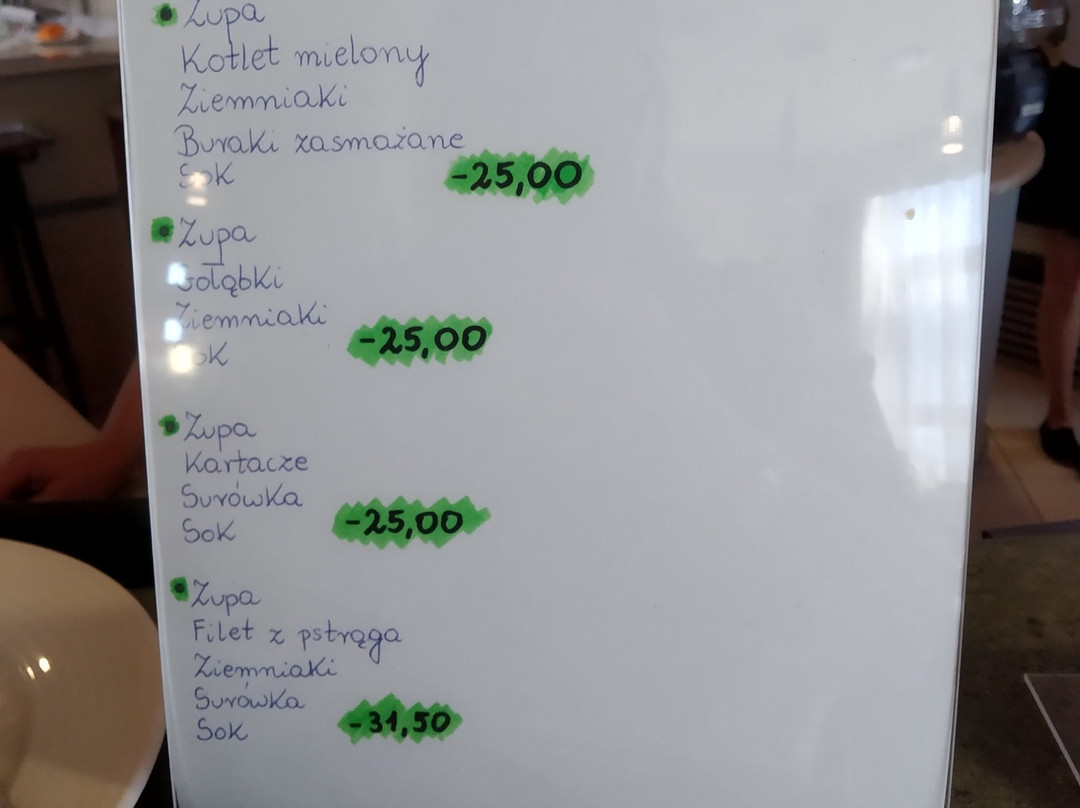 Zupa
Kotlet mielony
Ziemniaki
Buraki zasmażane
Sok -25,00
Zupa
Gołąbki
Ziemniaki
Sok -25,00
Zupa
Kartacze
Surówka
Sok -25,00
Zupa
Filet z pstrąga
Ziemniaki
Surówka
Sok -31,50